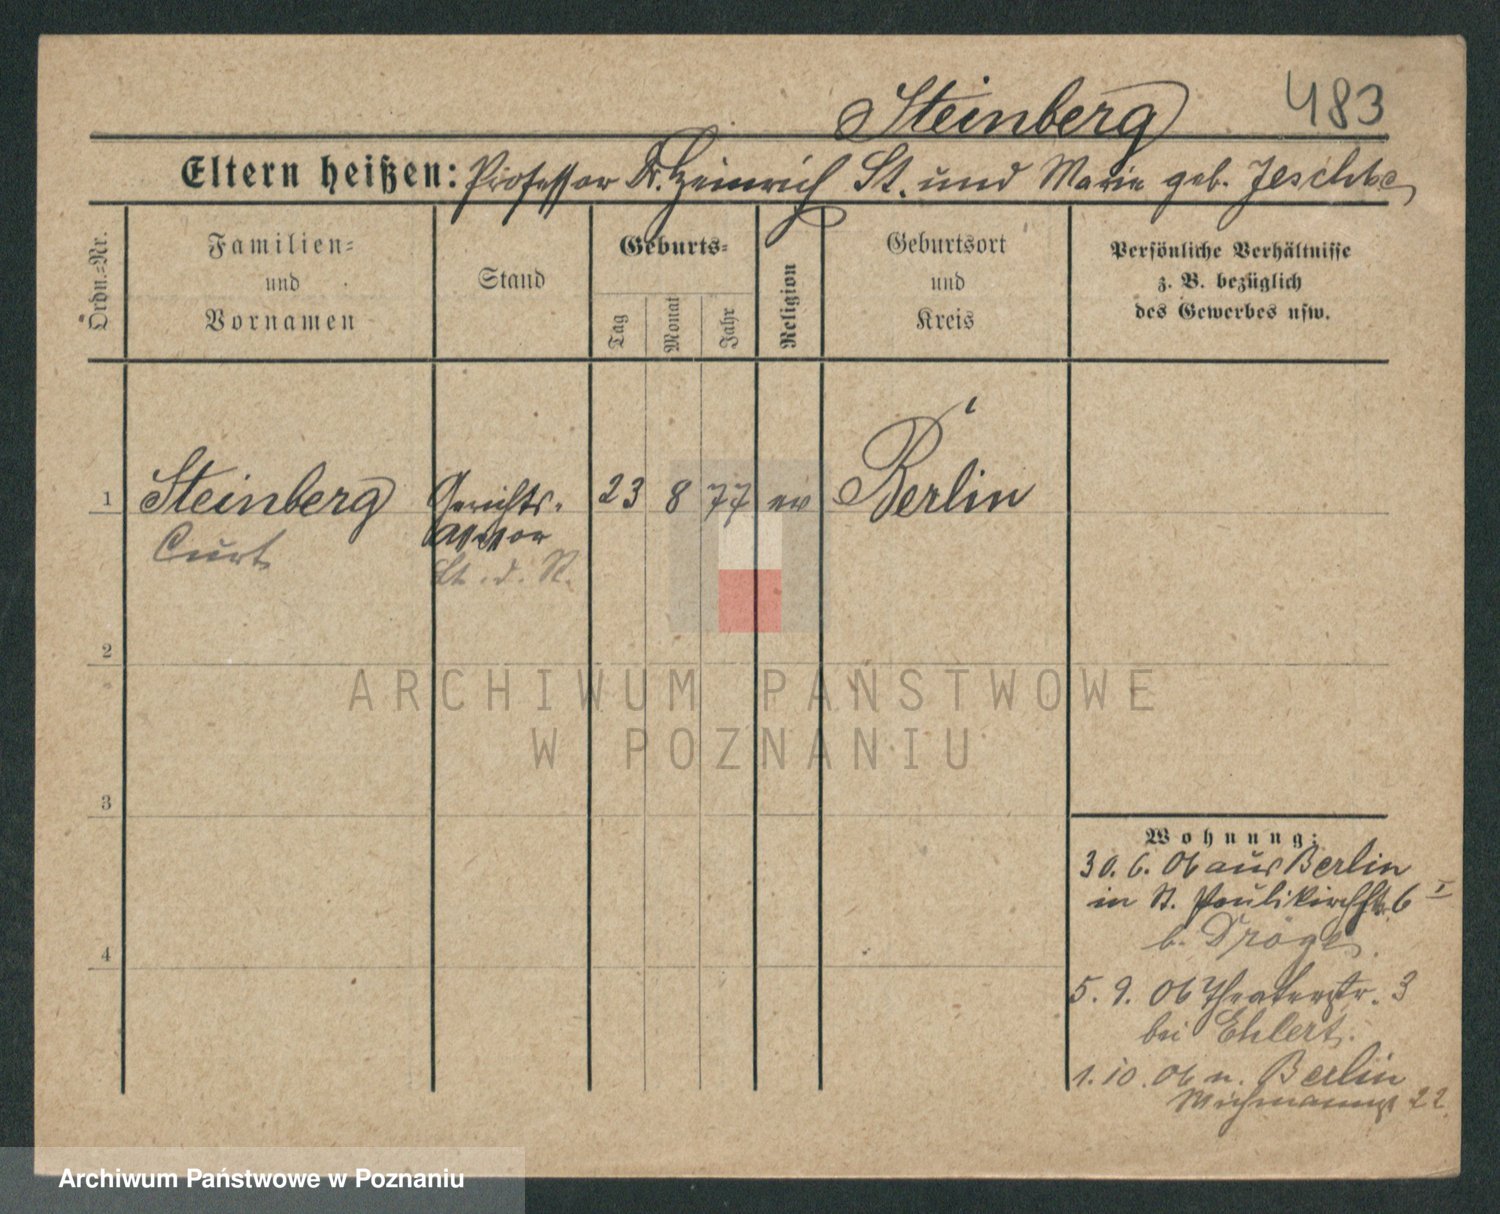 Steinberg 483
Eltern heißen: Professor Dr. Heinrich St. und Marie geb. Jeschke
Ordn.-Nr.
Familien-
und
Vornamen
Stand
Geburts-
Tag
Monat
Jahr
Religion
Geburtsort
und
Kreis
Persönliche Verhältnisse
z. B. bezüglich
des Gewerbes usw.
1 Steinberg Gerichts- 23 8 77 ev Berlin
Curt Assessor
Lt. d. R.
2
3
4
Wohnung:
30. 6. 06 aus Berlin
in St. Paulikirchstr. 6 I
b. Dröge
5. 9. 06 Theaterstr. 3
bei Ehlert.
1. 10. 06 n. Berlin
Wichmannstr 22
ARCHIWUM PAŃSTWOWE
W POZNANIU
Archiwum Państwowe w Poznaniu